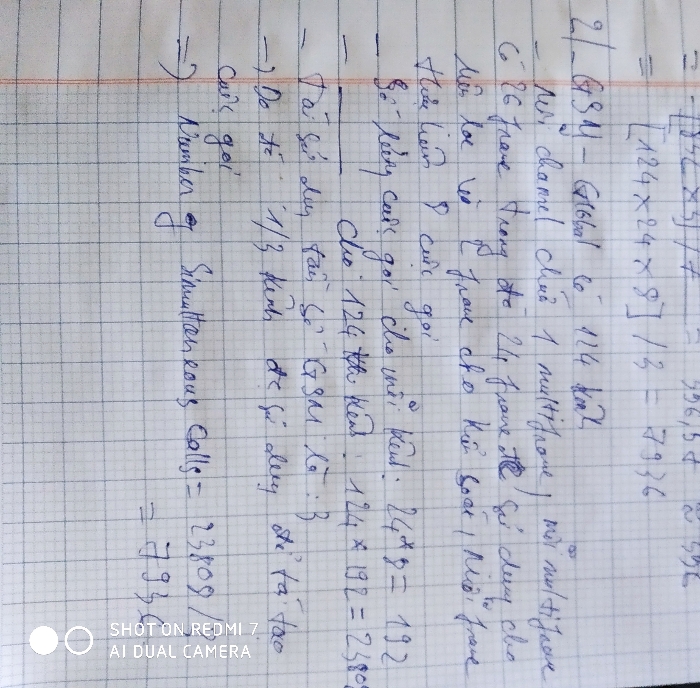 = 396,57 ≈ 396
= [124 x 24 x 8] / 3 = 7936
2/ - GSM - Global có 124 kênh
- Mỗi channel chứa 1 multiframe, mỗi multiframe
có 26 frame trong đó 24 frame để sử dụng cho
frame cho kiểm soát, mỗi frame
8 cuộc gọi
- Số lượng cuộc gọi cho mỗi kênh: 24 x 8 = 192
- cho 124 kênh: 124 x 192 = 23808
- Tái sử dụng tần số GSM là: 3
-> Do đó 1/3 kênh để sử dụng để tái tạo
cuộc gọi
=> Number of Simultaneous Calls = 23808 /
= 7936
SHOT ON REDMI 7
AI DUAL CAMERA